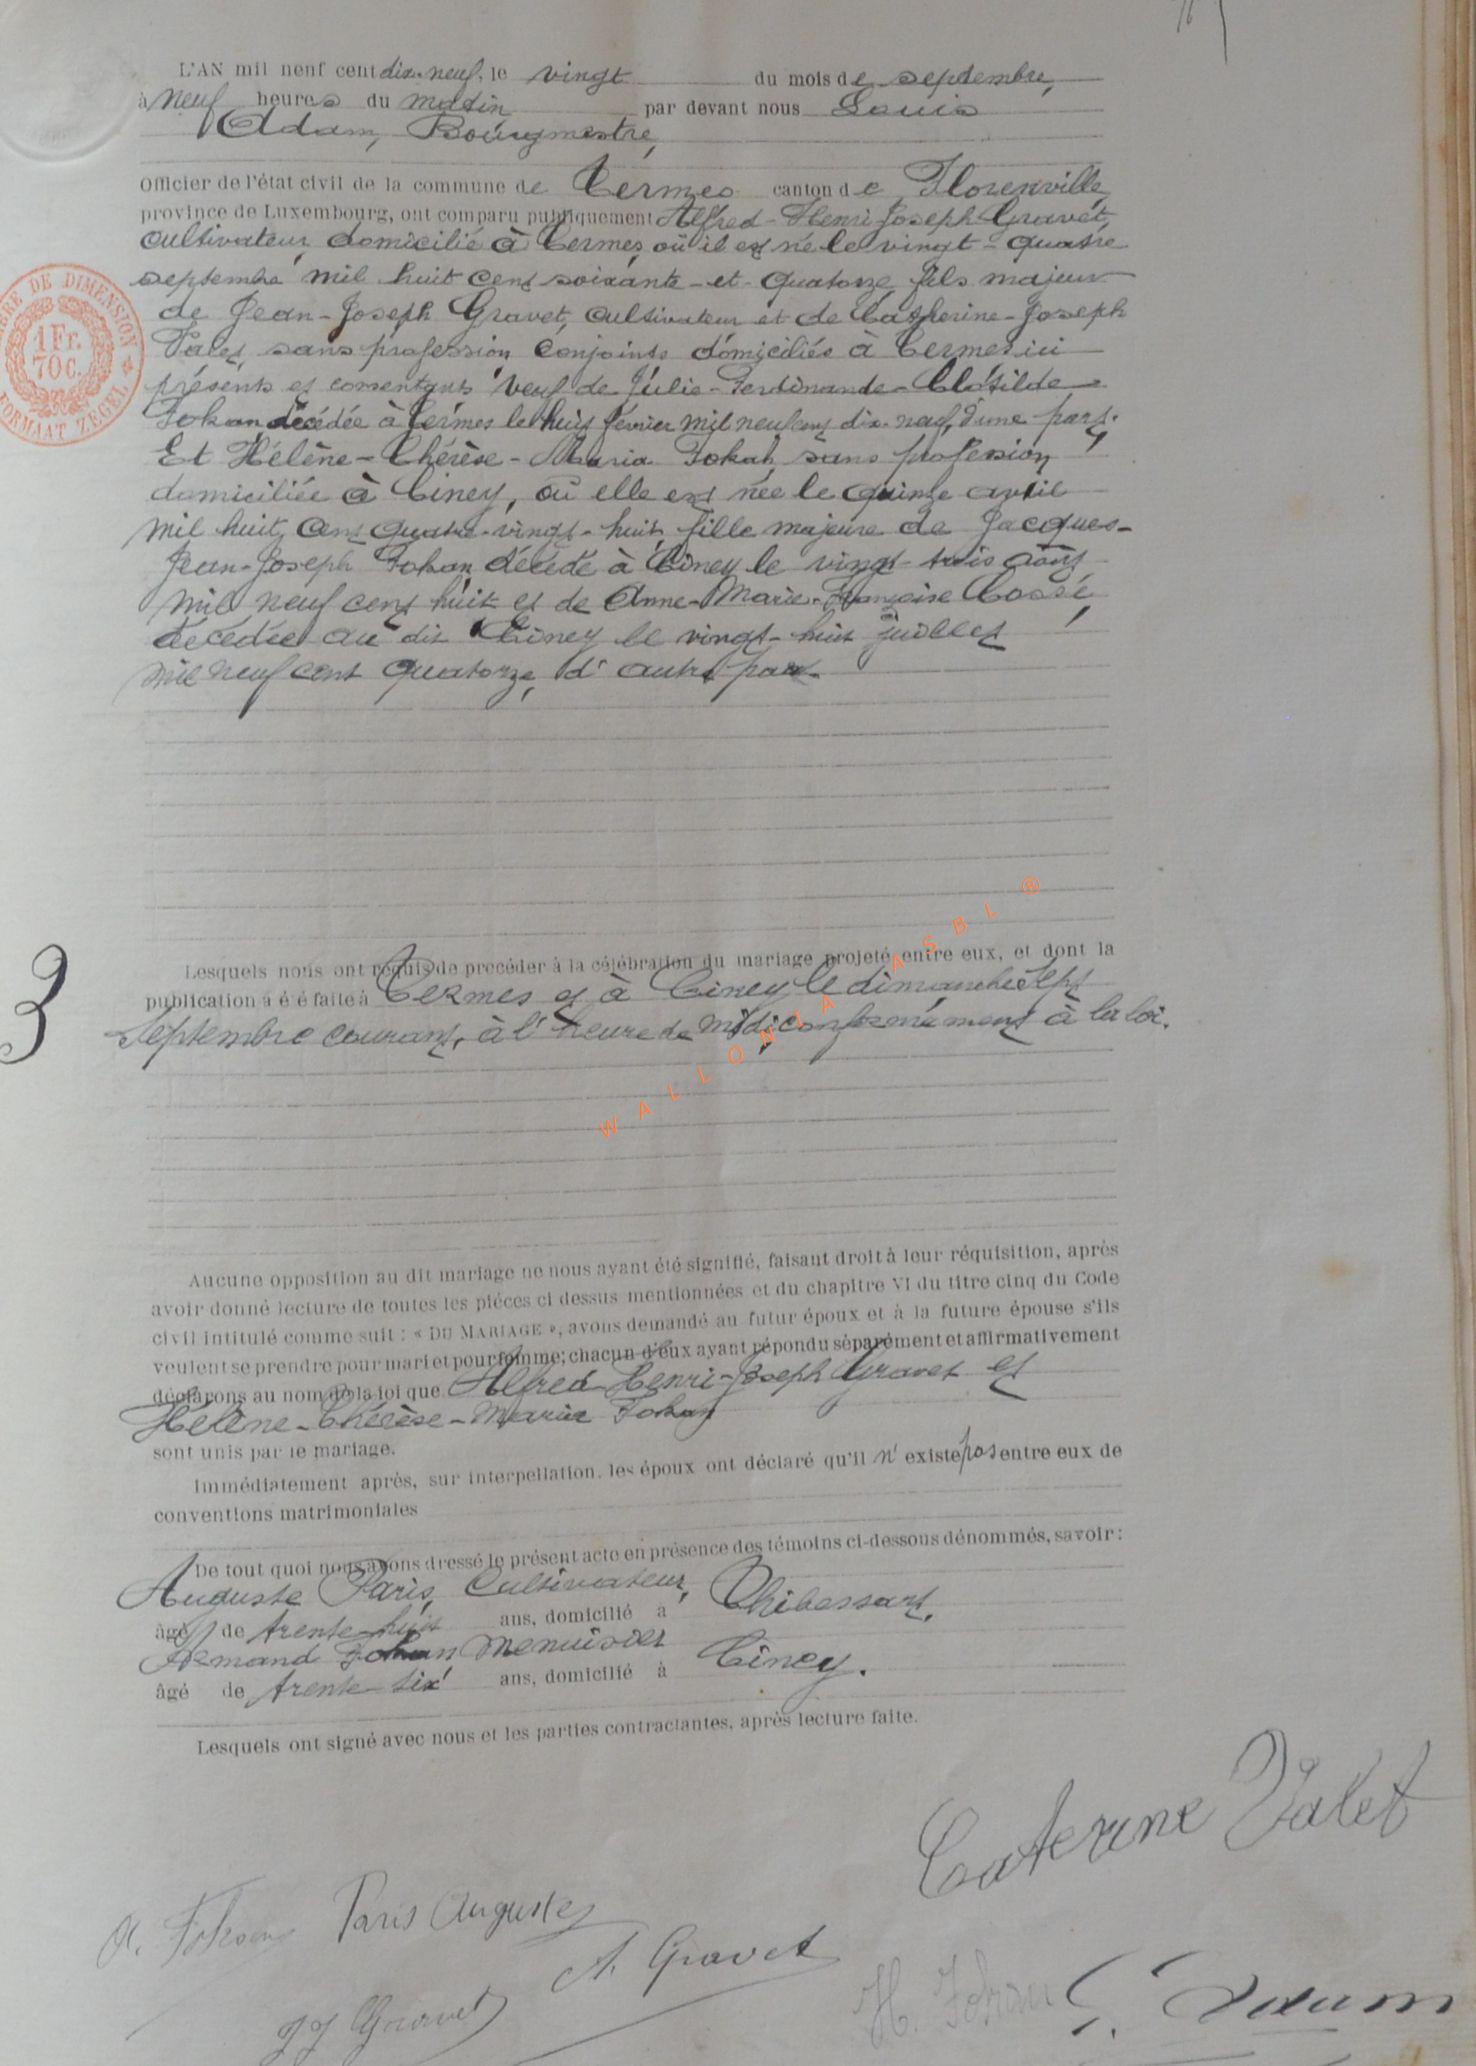 L'AN mil neuf cent dix-neuf, le vingt du mois de septembre,
à neuf heures du matin par devant nous Louis
Adam, Bourgmestre,
Officier de l'état civil de la commune de Termes canton de Florenville
province de Luxembourg, ont comparu publiquement Alfred-Henri-Joseph Gravet,
cultivateur, domicilié à Termes, où il est né le vingt-quatre
septembre mil huit cent soixante-et-quatorze, fils majeur
de Jean-Joseph Gravet, cultivateur et de Catherine-Joseph
Valet, sans profession, conjoints domiciliés à Termes ici
présents et consentants veuf de Julie-Ferdinande-Clotilde
Fohan décédée à Termes le huit février mil neuf cent dix-neuf, d'une part.
Et Hélène-Thérèse-Maria Fohan, sans profession,
domiciliée à Ciney, où elle est née le quinze avril
mil huit cent quatre-vingt-huit, fille majeure de Jacques-
Jean-Joseph Fohan décédé à Ciney le vingt-trois août
mil neuf cent huit et de Anne-Marie-Françoise Cossé,
décédée au dit Ciney le vingt-huit juillet
mil neuf cent quatorze, d'autre part.
1 Fr.
70 C.
TIMBRE DE DIMENSION
FORMAAT ZEGEL
3
Lesquels nous ont requis de procéder à la célébration du mariage projeté entre eux, et dont la
publication a été faite à Termes et à Ciney le dimanche sept
septembre courant, à l'heure de midi conformément à la loi.
WALLONIA ASBL ®
Aucune opposition au dit mariage ne nous ayant été signifié, faisant droit à leur réquisition, après
avoir donné lecture de toutes les pièces ci dessus mentionnées et du chapitre VI du titre cinq du Code
civil intitulé comme suit : « DU MARIAGE », avons demandé au futur époux et à la future épouse s'ils
veulent se prendre pour mari et pour femme; chacun d'eux ayant répondu séparément et affirmativement
déclarons au nom de la loi que Alfred-Henri-Joseph Gravet et
Hélène-Thérèse-Maria Fohan
sont unis par le mariage.
Immédiatement après, sur interpellation, les époux ont déclaré qu'il n'existe pas entre eux de
conventions matrimoniales
De tout quoi nous avons dressé le présent acte en présence des témoins ci-dessous dénommés, savoir :
Auguste Paris, Cultivateur,
âgé de trente-huit ans, domicilié à Thibessart,
Armand Fohan menuisier
âgé de trente-six ans, domicilié à Ciney.
Lesquels ont signé avec nous et les parties contractantes, après lecture faite.
Caterine Valet
A. Fohan Paris Auguste
A. Gravet
JJ Gravet H. Fohan L. Adam